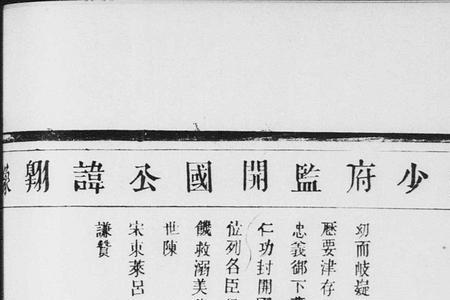 少府監開國公諱翱
幼而岐嶷
歷要津存
忠義御下
仁功封開國
位列名臣
饑救溺美
世陳
宋東萊呂
謙贊